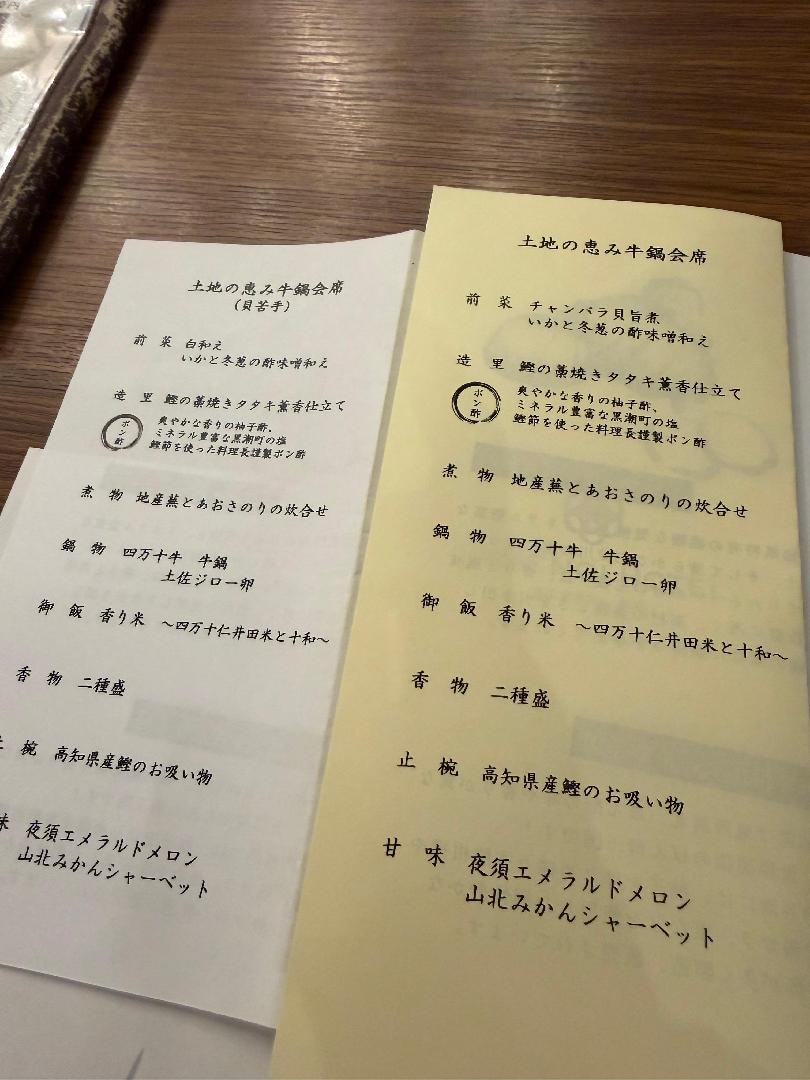 土地の恵み牛鍋会席
(貝苦手)
前菜 白和え
いかと冬葱の酢味噌和え
造里 鰹の藁焼きタタキ薫香仕立て
ポン酢
爽やかな香りの柚子酢、
ミネラル豊富な黒潮町の塩
鰹節を使った料理長謹製ポン酢
煮物 地産蕪とあおさのりの炊合せ
鍋物 四万十牛 牛鍋
土佐ジロー卵
御飯 香り米 ～四万十仁井田米と十和～
香物 二種盛
止椀 高知県産鰹のお吸い物
味 夜須エメラルドメロン
山北みかんシャーベット
土地の恵み牛鍋会席
前菜 チャンバラ貝旨煮
いかと冬葱の酢味噌和え
造里 鰹の藁焼きタタキ薫香仕立て
ポン酢
爽やかな香りの柚子酢、
ミネラル豊富な黒潮町の塩
鰹節を使った料理長謹製ポン酢
煮物 地産蕪とあおさのりの炊合せ
鍋物 四万十牛 牛鍋
土佐ジロー卵
御飯 香り米 ～四万十仁井田米と十和～
香物 二種盛
止椀 高知県産鰹のお吸い物
甘味 夜須エメラルドメロン
山北みかんシャーベット